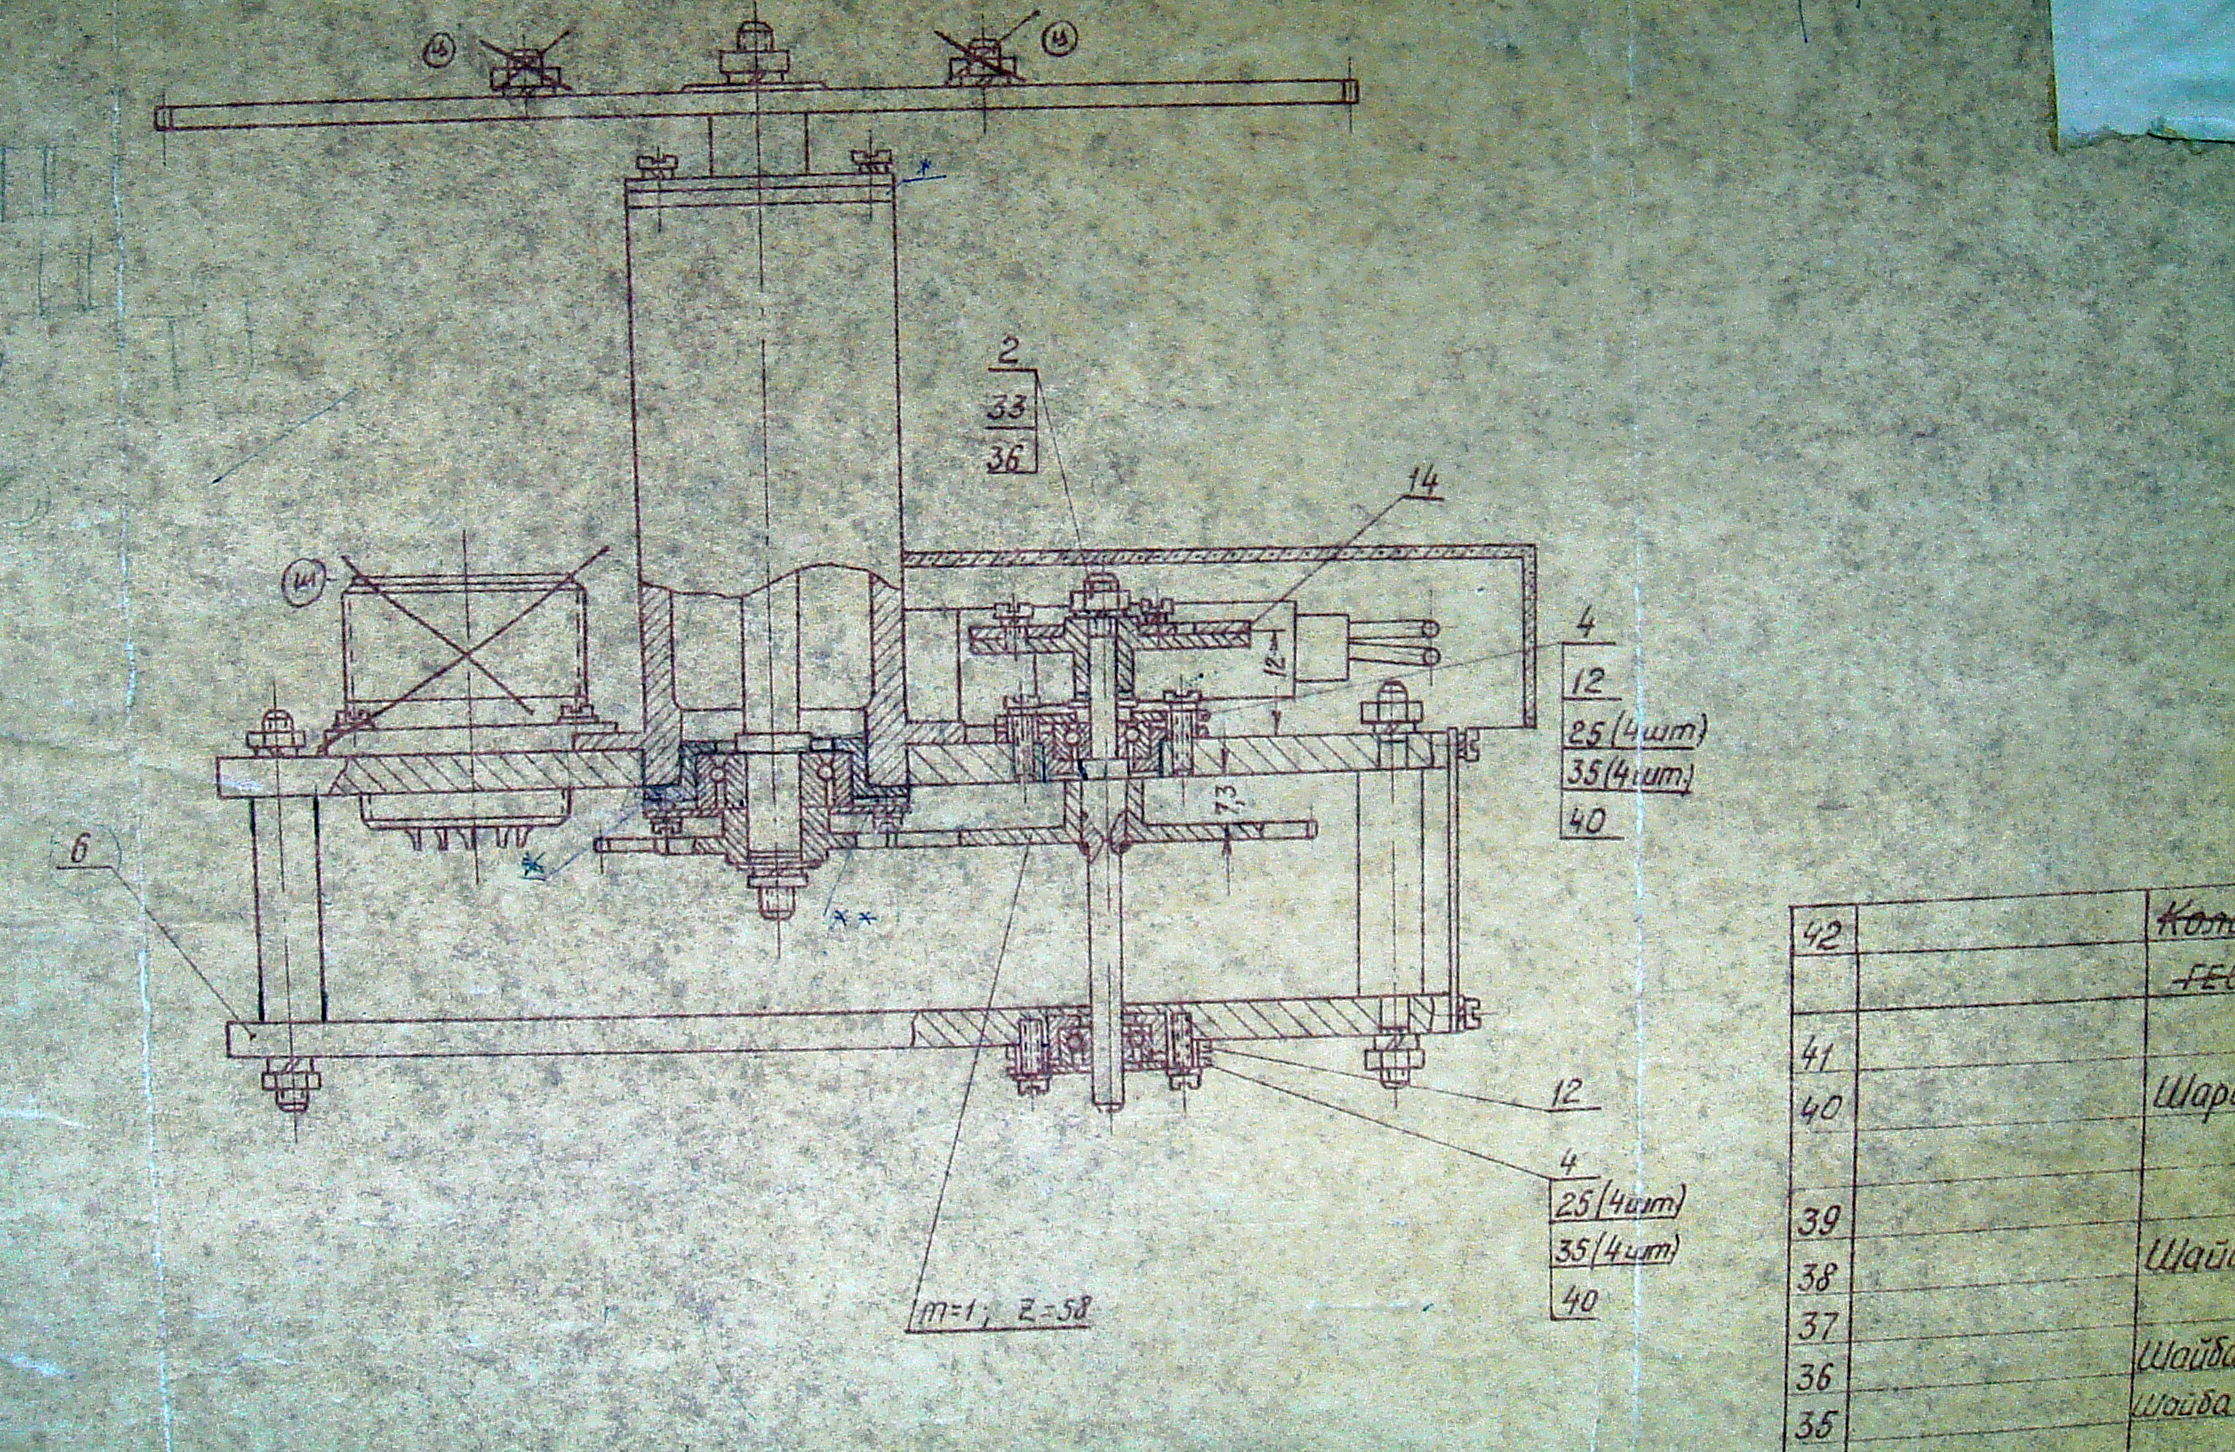 ц
ц
*
2
33
36
14
ш
4
12
25 (4шт)
35 (4шт)
40
12
7,3
6
*
**
12
4
25 (4шт)
35 (4шт)
40
m=1; z=58
42
41
40
39
38
37
36 Шайба
35 Шайба